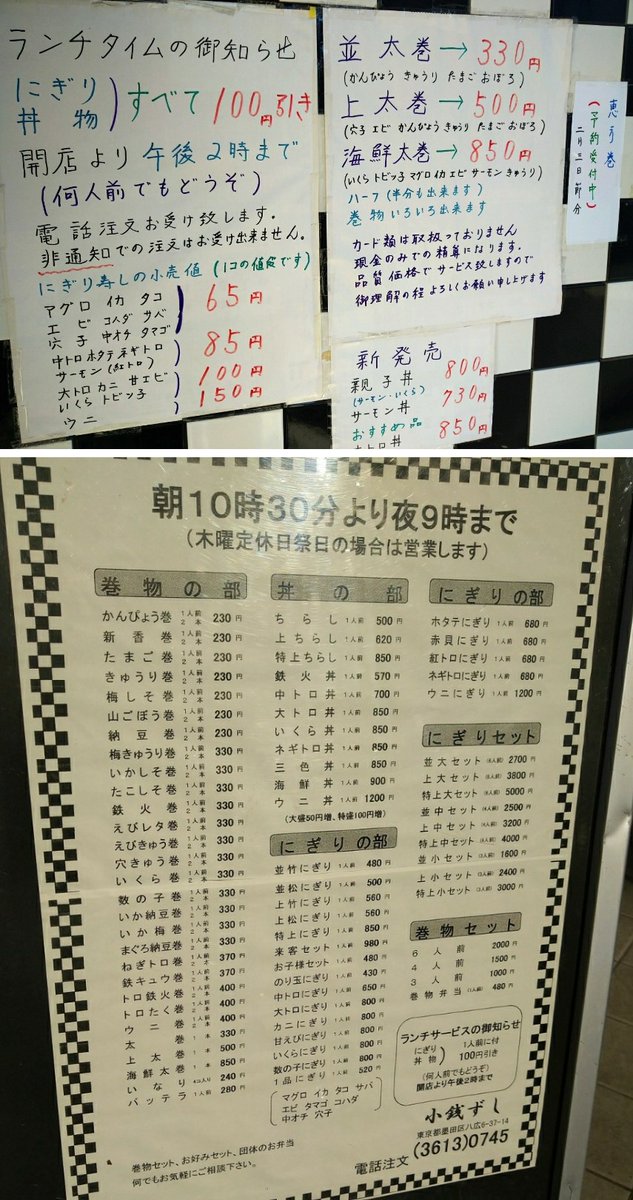 ランチタイムの御知らせ
にぎり
丼物
すべて100円引き
開店より午後2時まで
(何人前でもどうぞ)
電話注文お受け致します.
非通知での注文はお受け出来ません.
にぎり寿しの小売値(1コの値段です)
マグロ イカ タコ
エビ コハダ サバ
65円
穴子 中オチ タマゴ
中トロ ホタテ ネギトロ
サーモン(紅トロ)
85円
大トロ カニ 甘エビ
100円
いくら トビッ子
150円
ウニ
並太巻→330円
(かんぴょう きゅうり たまご おぼろ)
上太巻→500円
(穴子 エビ かんぴょう きゅうり たまご おぼろ)
海鮮太巻→850円
(いくら トビッ子 マグロ イカ エビ サーモン きゅうり)
ハーフ(半分も出来ます)
巻物いろいろ出来ます
カード類は取扱っておりません
現金のみでの精算になります.
品質価格でサービス致しますので
御理解の程よろしくお願い申し上げます
恵方巻
(予約受付中)
二月三日節分
新発売
親子丼 800円
(サーモン・いくら)
サーモン丼 730円
おすすめ品 850円
大トロ丼
朝10時30分より夜9時まで
(木曜定休日祭日の場合は営業します)
巻物の部
かんぴょう巻 1人前 2本 230円
新香巻 1人前 2本 230円
たまご巻 1人前 2本 230円
きゅうり巻 1人前 2本 230円
梅しそ巻 1人前 2本 230円
山ごぼう巻 1人前 2本 230円
納豆巻 1人前 2本 230円
梅きゅうり巻 1人前 2本 330円
いかしそ巻 1人前 2本 330円
たこしそ巻 1人前 2本 330円
鉄火巻 1人前 2本 330円
えびレタ巻 1人前 2本 330円
えびきゅう巻 1人前 2本 330円
穴きゅう巻 1人前 2本 330円
いくら巻 1人前 2本 330円
数の子巻 1人前 2本 330円
いか納豆巻 1人前 2本 330円
いか梅巻 1人前 2本 330円
まぐろ納豆巻 1人前 2本 330円
ねぎトロ巻 1人前 2本 370円
鉄キュウ巻 1人前 2本 370円
トロ鉄火巻 1人前 2本 400円
トロたく巻 1人前 2本 400円
ウニ巻 1人前 2本 400円
太巻 1本 330円
上太巻 1本 500円
海鮮太巻 1本 850円
いなり 4コ入り 240円
バッテラ 1人前 280円
丼の部
ちらし 1人前 500円
上ちらし 1人前 620円
特上ちらし 1人前 850円
鉄火丼 1人前 570円
中トロ丼 1人前 700円
大トロ丼 1人前 850円
いくら丼 1人前 850円
ネギトロ丼 1人前 850円
三色丼 1人前 850円
海鮮丼 1人前 900円
ウニ丼 1人前 1200円
(大盛50円増、特盛100円増)
にぎりの部
並竹にぎり 1人前 480円
並松にぎり 1人前 500円
上竹にぎり 1人前 560円
上松にぎり 1人前 560円
特上にぎり 1人前 850円
来客セット 1人前 980円
お子様セット 1人前 480円
のり玉にぎり 1人前 430円
中トロにぎり 1人前 650円
大トロにぎり 1人前 800円
カニにぎり 1人前 800円
甘えびにぎり 1人前 800円
いくらにぎり 1人前 800円
数の子にぎり 1人前 800円
1品にぎり 1人前 520円
マグロ イカ タコ サバ
エビ タマゴ コハダ
中オチ 穴子
にぎりの部
ホタテにぎり 1人前 680円
赤貝にぎり 1人前 680円
紅トロにぎり 1人前 680円
ネギトロにぎり 1人前 680円
ウニにぎり 1人前 1200円
にぎりセット
並大セット 2700円
上大セット 3800円
特上大セット 5000円
並中セット (4人前) 2500円
上中セット (4人前) 3200円
特上中セット (4人前) 4000円
並小セット (3人前) 1600円
上小セット (3人前) 2400円
特上小セット (3人前) 3000円
巻物セット
6人前 2000円
4人前 1500円
3人前 1000円
巻物弁当 (1人前) 480円
ランチサービスの御知らせ
にぎり
丼物
1人前に付
100円引き
(何人前でもどうぞ)
開店より午後2時まで
小銭ずし
東京都墨田区八広6-37-14
電話注文 (3613)0745
巻物セット、お好みセット、団体のお弁当
何でもお気軽にご相談下さい。